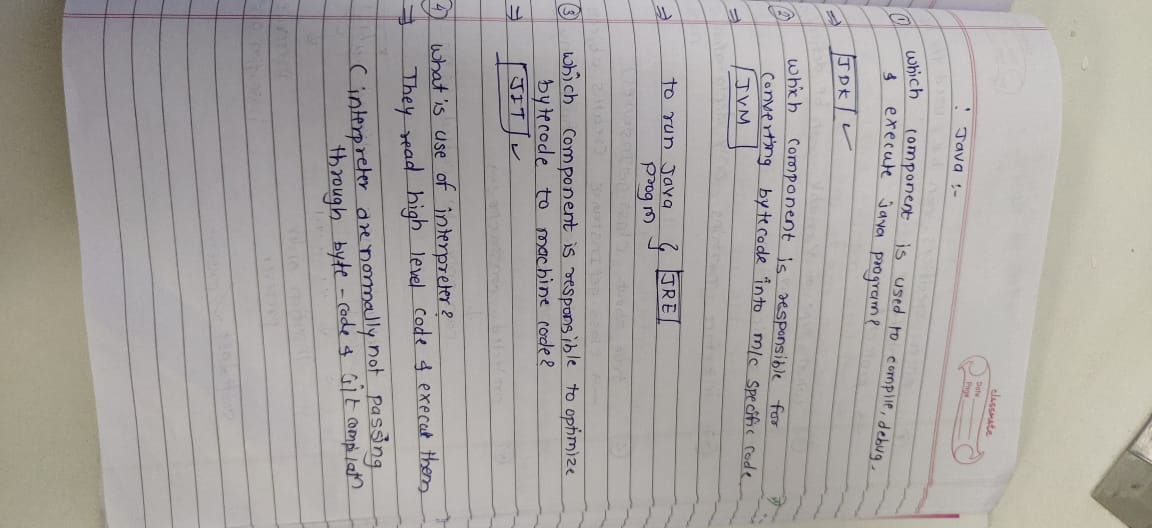 classmate
Date
Page
: Java :-
① which component is used to compile, debug,
& execute java programe
⇒ JDK ✓
② which component is responsible for
converting bytecode into m/c specific code
⇒ JVM
⇒ to run Java
progm } JRE
③ which component is responsible to optimize
bytecode to machine code?
⇒ JIT ✓
④ what is use of interpreter?
⇒ They read high level code & execut them
( interpreter are normally not passing
through byte-code &